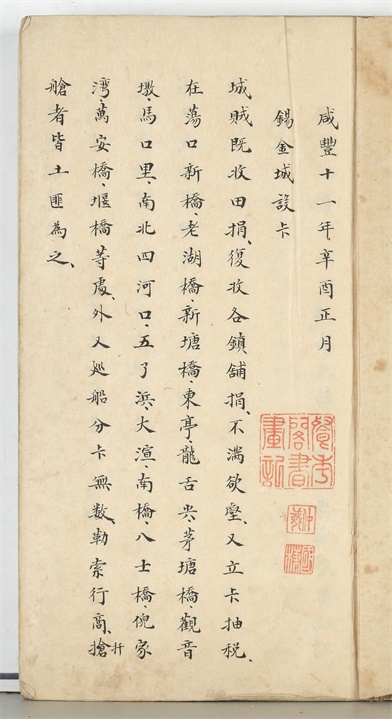 咸豐十一年辛酉正月
錫金城設卡
城賊既收田捐、復收各鎮舖捐、不滿欲壑、又立卡抽稅、
在蕩口新橋、老湖橋、新塘橋、東亭、龍舌尖、茅塘橋、觀音
墩、馬口里、南北四河口、五了浜、大渲、南橋、八士橋、倪家
灣、萬安橋、堰橋等處、外又巡船分卡無數、勒索行商、搶
扦
艙者皆土匪為之、